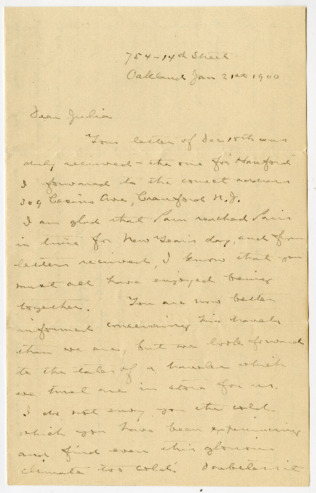 754-14th Street
Oakland Jan 21st 1900
Dear Julia
Your letter of Dec 10th was
duly received - the one for Hanford
I forwarded to the correct address
309 Ave, Cranford N.J.
I am glad that Sam reached Paris
in time for New Years day, and from
letters received, I know that you
must all have enjoyed being
together. You are now better
informed concerning his travels
than we are, but we look forward
to the tales of a traveler which
we trust are in store for us.
I do not envy you the cold
which you have been experiencing
and find even this glorious
climate too cold. Doubtless it